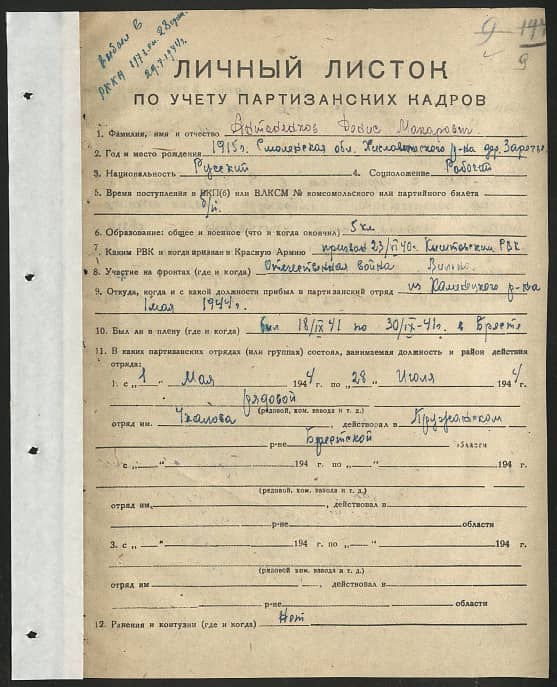 выбыл в
РККА
29.7.1944г.
ЛИЧНЫЙ ЛИСТОК
ПО УЧЕТУ ПАРТИЗАНСКИХ КАДРОВ
1. Фамилия, имя и отчество Макарович
2. Год и место рождения 1915г. Смоленская обл. р-на дер.
3. Национальность Русский 4. Соцположение Рабочий
5. Время поступления в ВКП(б) или ВЛКСМ № комсомольского или партийного билета
б/п.
6. Образование: общее и военное (что и когда окончил) 5 кл
7. Каким РВК и когда призван в Красную Армию призван 23/VI 40г. РВК
8. Участие на фронтах (где и когда) Отечественная война
9. Откуда, когда и с какой должности прибыл в партизанский отряд из р-на
1 мая 1944г.
10. Был ли в плену (где и когда) был 18/IX 41 по 30/IX-41г. в Бресте
11. В каких партизанских отрядах (или группах) состоял, занимаемая должность и район действия
отряда:
1. с „1" Мая 1944 г. по „28" Июля 1944 г.
рядовой
(рядовой, ком. взвода и т. д.)
отряд им. Чкалова, действовал в Пружанском
р-не Брестской области
с „ — " 194 г. по „ — " 194 г.
(рядовой, ком. взвода и т. д.)
отряд им. , действовал в
р-не области
3. с „ — " 194 г. по „ — " 194 г.
(рядовой, ком. взвода и т. д.)
отряд им , действовал в
р-не области
12. Ранения и контузии (где и когда) Нет